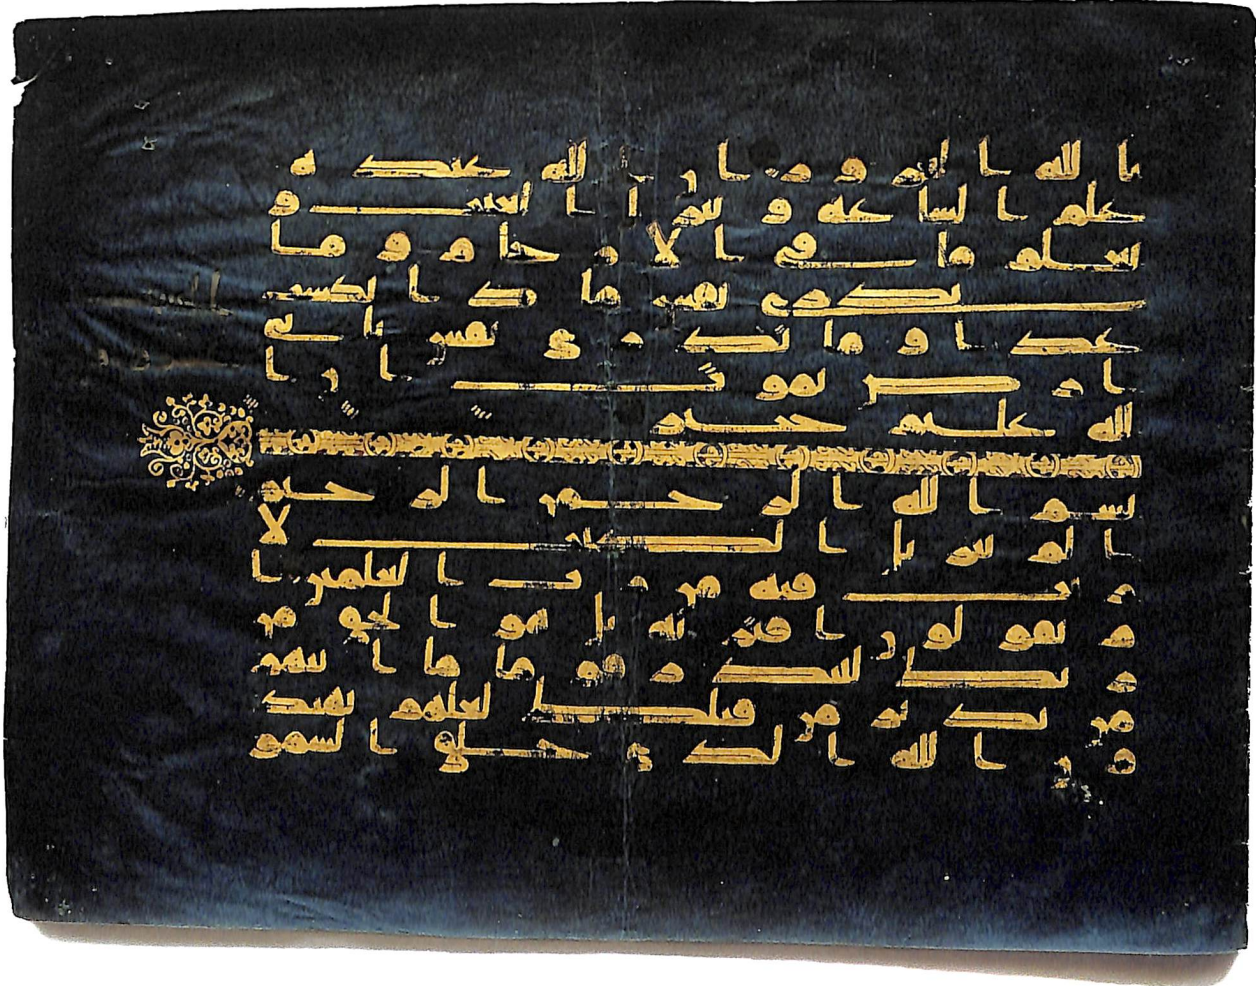 بالله الغرور ان الله عنده
علم الساعه وينزل الغيث و
يعلم ما فى الارحام وما
تدرى نفس ماذا تكسب
غدا وما تدرى نفس باى
ارض تموت ان ا
لله عليم خبير
بسم الله الرحمن الرحيم
الم تنزيل الكتب لا
ريب فيه من رب العلمين ا
م يقولون افتريه بل هو الحق من
ربك لتنذر قوما ما اتيهم
من نذير من قبلك لعلهم يهتد
ون الله الذى خلق السمو